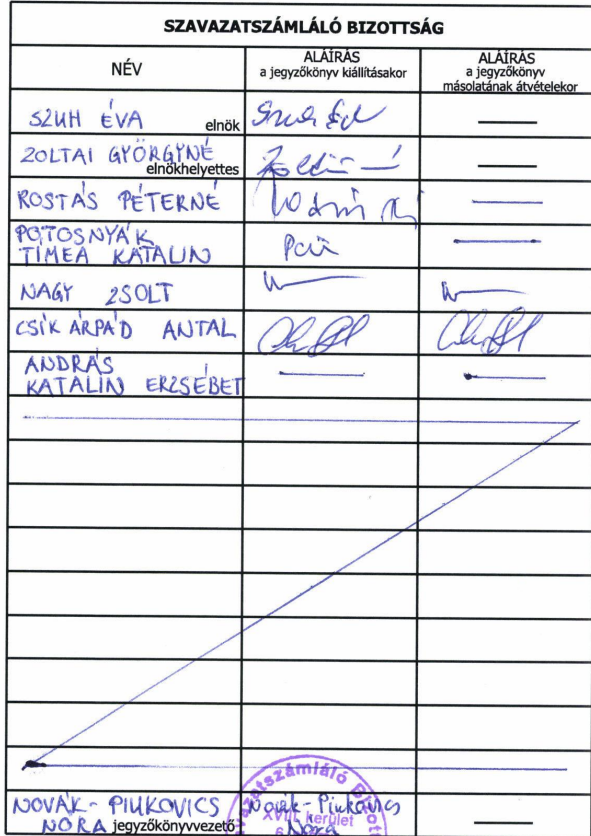 SZAVAZATSZÁMLÁLÓ BIZOTTSÁG
NÉV
ALÁÍRÁS
a jegyzőkönyv kiállításakor
ALÁÍRÁS
a jegyzőkönyv
másolatának átvételekor
SZUH ÉVA elnök
ZOLTAI GYÖRGYNÉ
elnökhelyettes
ROSTÁS PÉTERNÉ
POTOSNYÁK
TÍMEA KATALIN
NAGY ZSOLT
CSÍK ÁRPÁD ANTAL
ANDRÁS
KATALIN ERZSÉBET
NOVÁK-PIUKOVICS
NÓRA jegyzőkönyvvezető
Novák-Piukovics
Nóra
XVIII. kerület